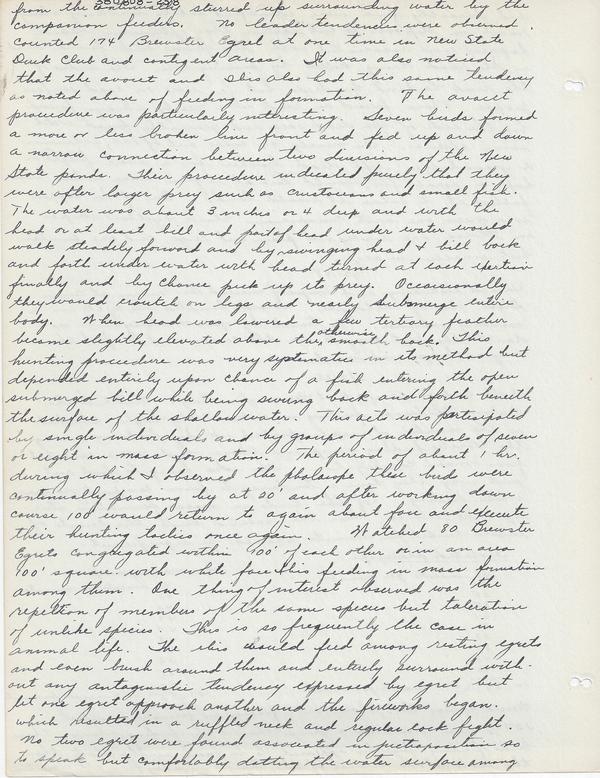 from the continued stirred up surrounding water by the
companion feeders. No leader tendencies were observed.
Counted 174 Brewster Egret at one time in New State
Duck Club and contigent areas. It was also noticed
that the avocet and Ibis also had this same tendency
as noted above of feeding in formation. The avocet
procedure was particularly interesting. Seven birds formed
a more or less broken line front and fed up and down
a narrow connection between two divisions of the New
State ponds. Their procedure indicated purely that they
were after larger prey such as crustaceans and small fish.
The water was about 3 inches or 4 deep and with the
head or at least bill and part of head under water would
walk steadily forward and by swinging head & bill back
and forth under water with head turned at each
finally and by chance pick up its prey. Occasionally
they would crouch on legs and nearly submerge entire
body. When head was lowered a few tertiary feather
became slightly elevated above the, otherwise smooth back. This
hunting procedure was very systematic in its method but
depended entirely upon chance of a fish entering the open
submerged bill while being swung back and forth beneath
the surface of the shallow water. This acts was participated
by single individuals and by groups of individuals of seven
or eight in mass formation. The period of about 1 hr.
during which I observed the phalarope these birds were
continually passing by at 20' and after working down
course 100' would return to again about face and execute
their hunting tactics once again. Watched 80 Brewster
Egrets congregated within 100' of each other or in an area
100' square with white face Ibis feeding in mass formation
among them. One thing of interest observed was the
repeltion of members of the same species but toleration
of unlike species. This is so frequently the case in
animal life. The ibis would feed among resting egrets
and even brush around them and entirely surround with-
out any antagonistic tendency expressed by egret but
let one egret approach another and the fireworks began.
which resulted in a ruffled neck and regular cock fight.
No two egret were found associated in juxtaposition so
to speak but comfortably dotting the water surface among